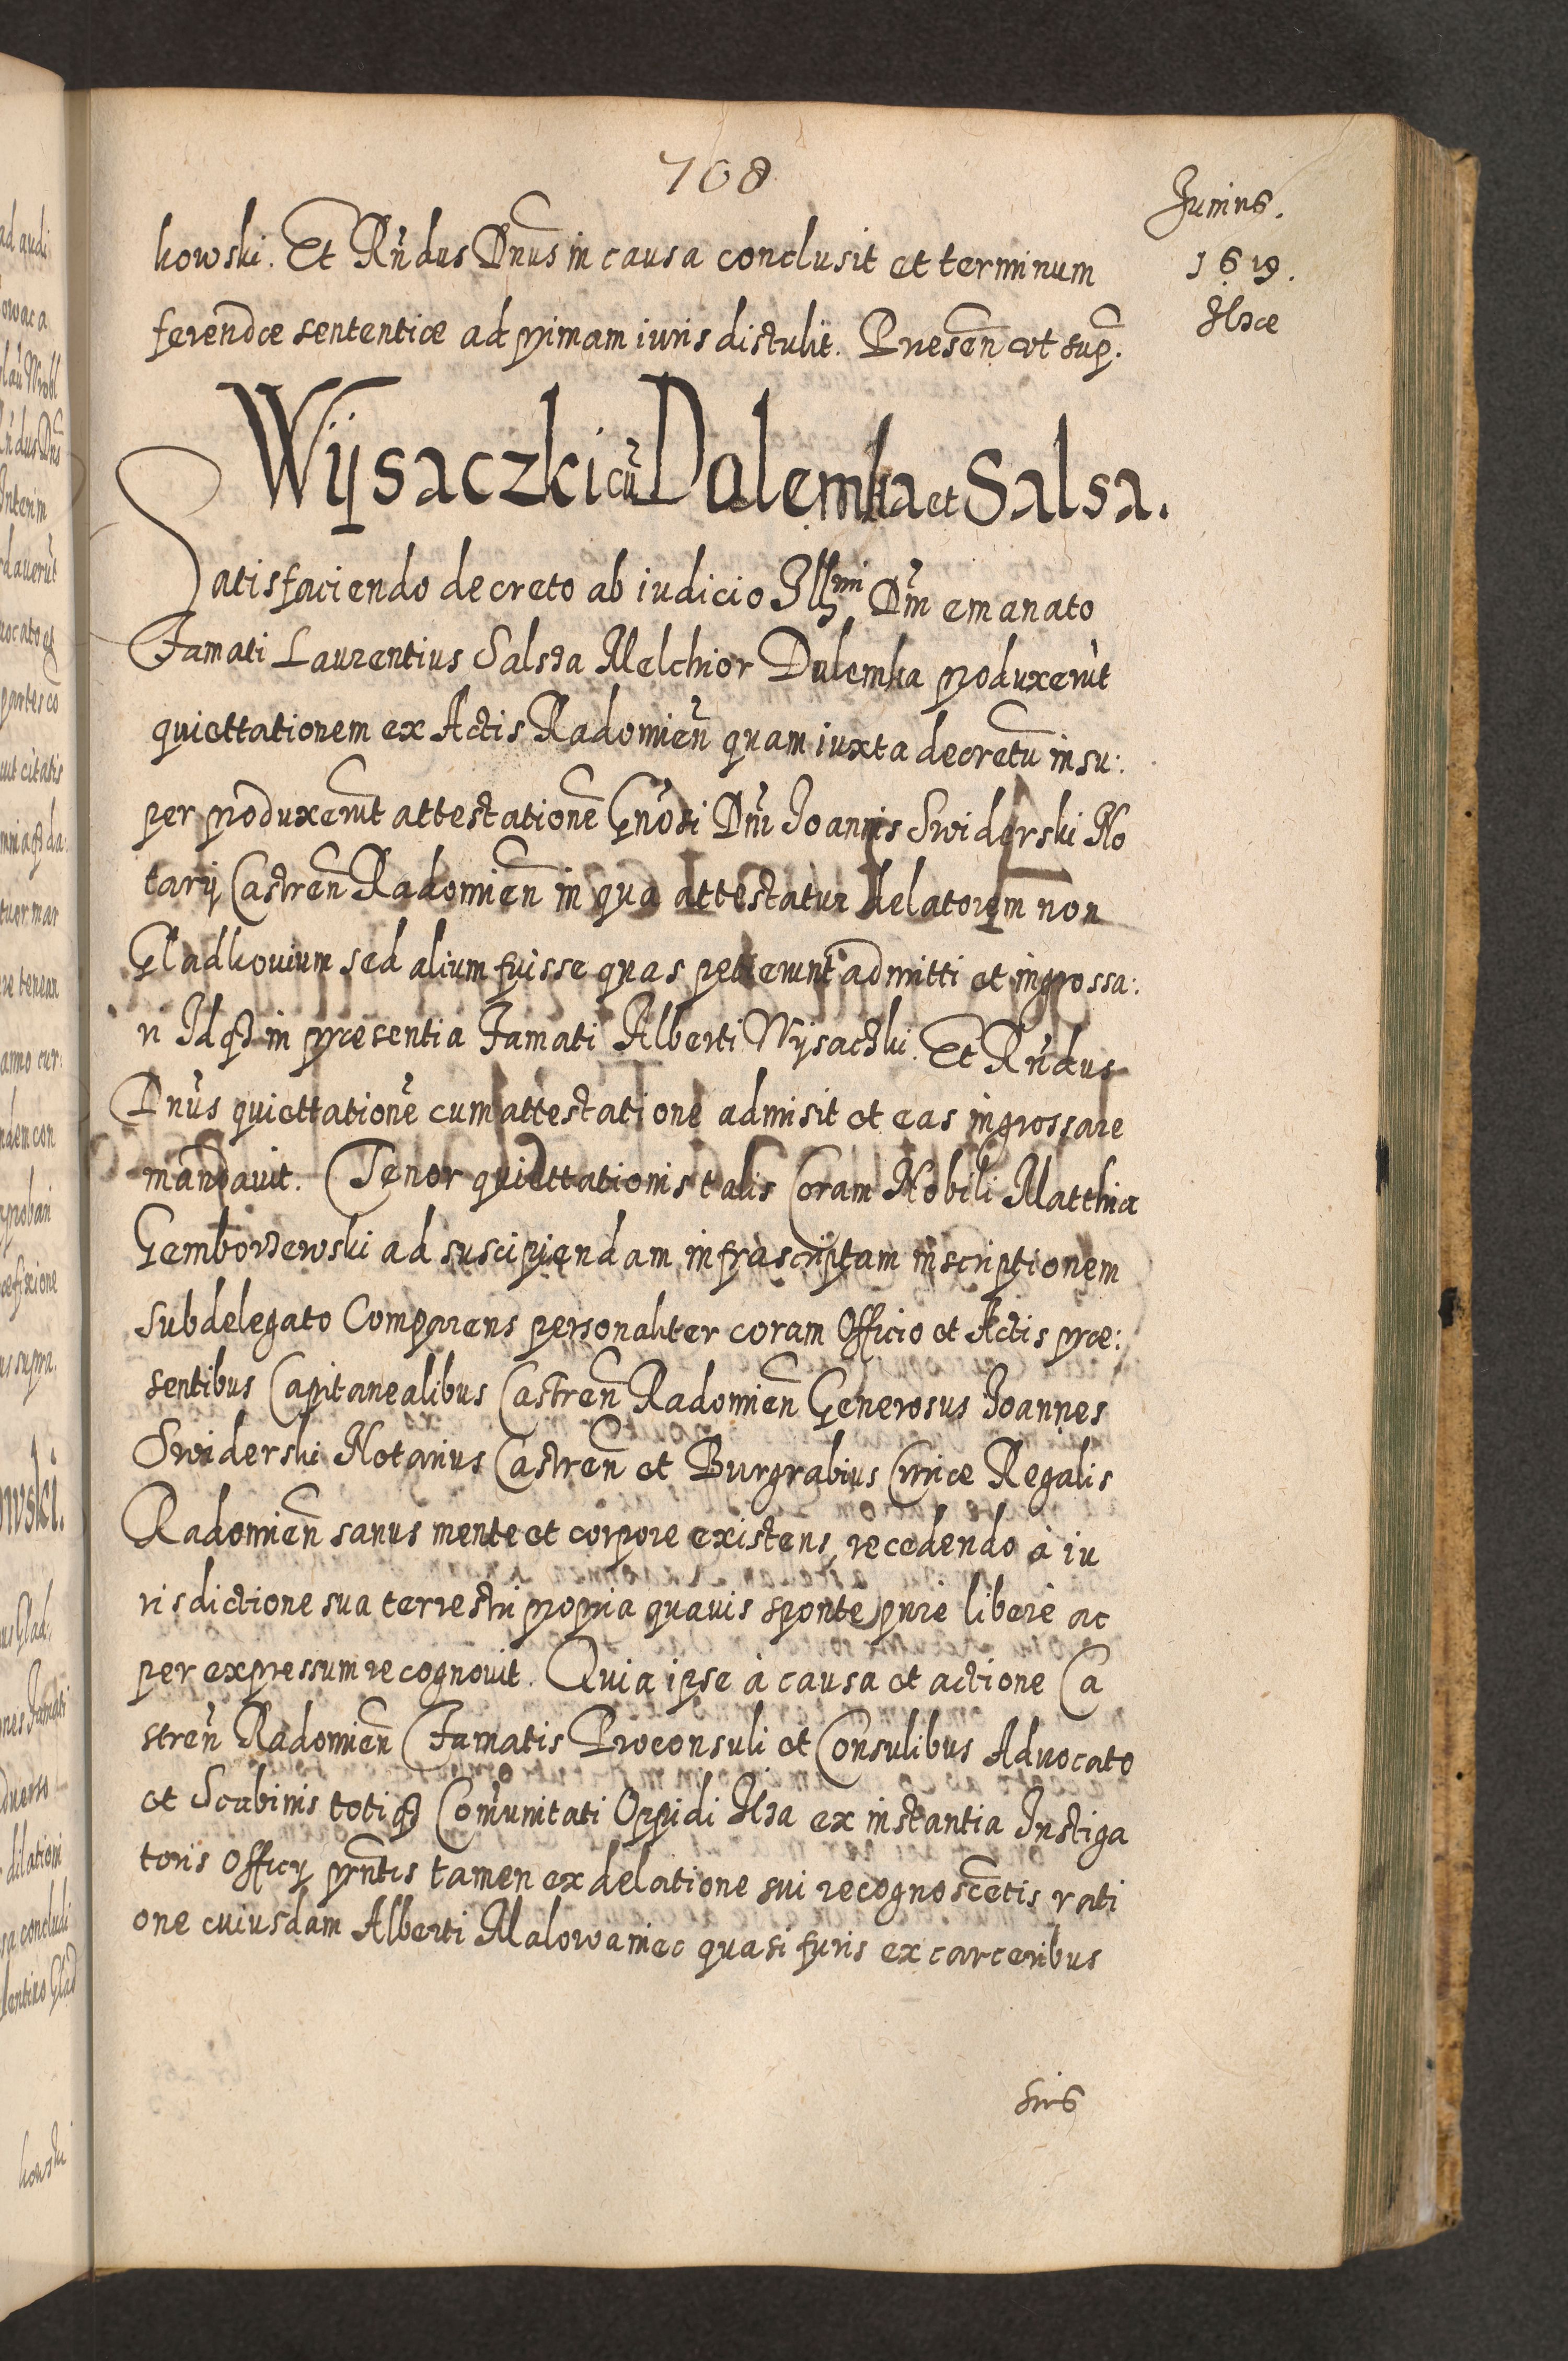 708
Junius.
1619.
Ilzae
kowski. Et Rn̄dus Dn̄us in causa conclusit et terminum
ferendae sententiae ad primam iuris distulit. Presen̄ ut sup̄.
Wijsaczki cū Dulemka et Salsa.
Satisfaciendo decreto ab iudicio Illmi Dn̄i emanato
Famati Laurentius Salsza Melchior Dulemka produxerūt
quiettationem ex Actis Radomien̄ quam iuxta decretū insu:
per produxerūt attestationē Gn̄osi Dn̄i Joannis Swiderski No
tarij Castren̄ Radomien̄ in qua attestatur delatorem non
Gladkovium sed alium fuisse quas petierunt admitti et ingrossa:
ri Idq3 in praesentia Famati Alberti Wijsaczki. Et Rn̄dus
Dn̄us quiettationē cum attestatione admisit et eas ingrossare
mandavit. Tenor quiettationis talis Coram Nobili Matthia
Gemborzewski ad suscipiendam infrascriptam inscriptionem
subdelegato Comparens personaliter coram Officio et Actis prae:
sentibus Capitanealibus Castren̄ Radomien̄ Generosus Joannes
Swiderski Notarius Castren̄ et Burgrabius Curiae Regalis
Radomien̄ sanus mente et corpore existens, recedendo à iu
risdictione sua terrestri propria quavis sponte pure libere ac
per expressum recognovit. Quia ipse à causa et actione Ca
stren̄ Radomien̄ Famatis Proconsuli et Consulibus Advocato
et Scabinis totiq3 Com̄unitati Oppidi Ilza ex instantia Instiga
toris Officij prn̄tis tamen ex delatione sui recognoscētis rati
one cuiusdam Alberti Malowaniec quasi furis ex carceribus
suis